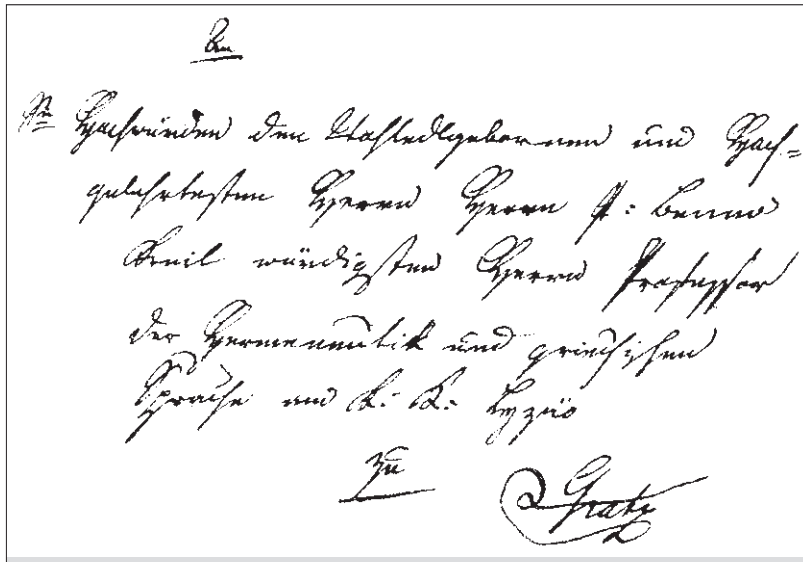 An
Sr Hochwürden den Wohledlgebornen und Hoch=
gelehrtesten Herrn Herrn P: Benno
Kreil würdigsten Herrn Professor
der Hermeneutik und griechischen
Sprache am K: K: Lyzäo
zu
Gratz